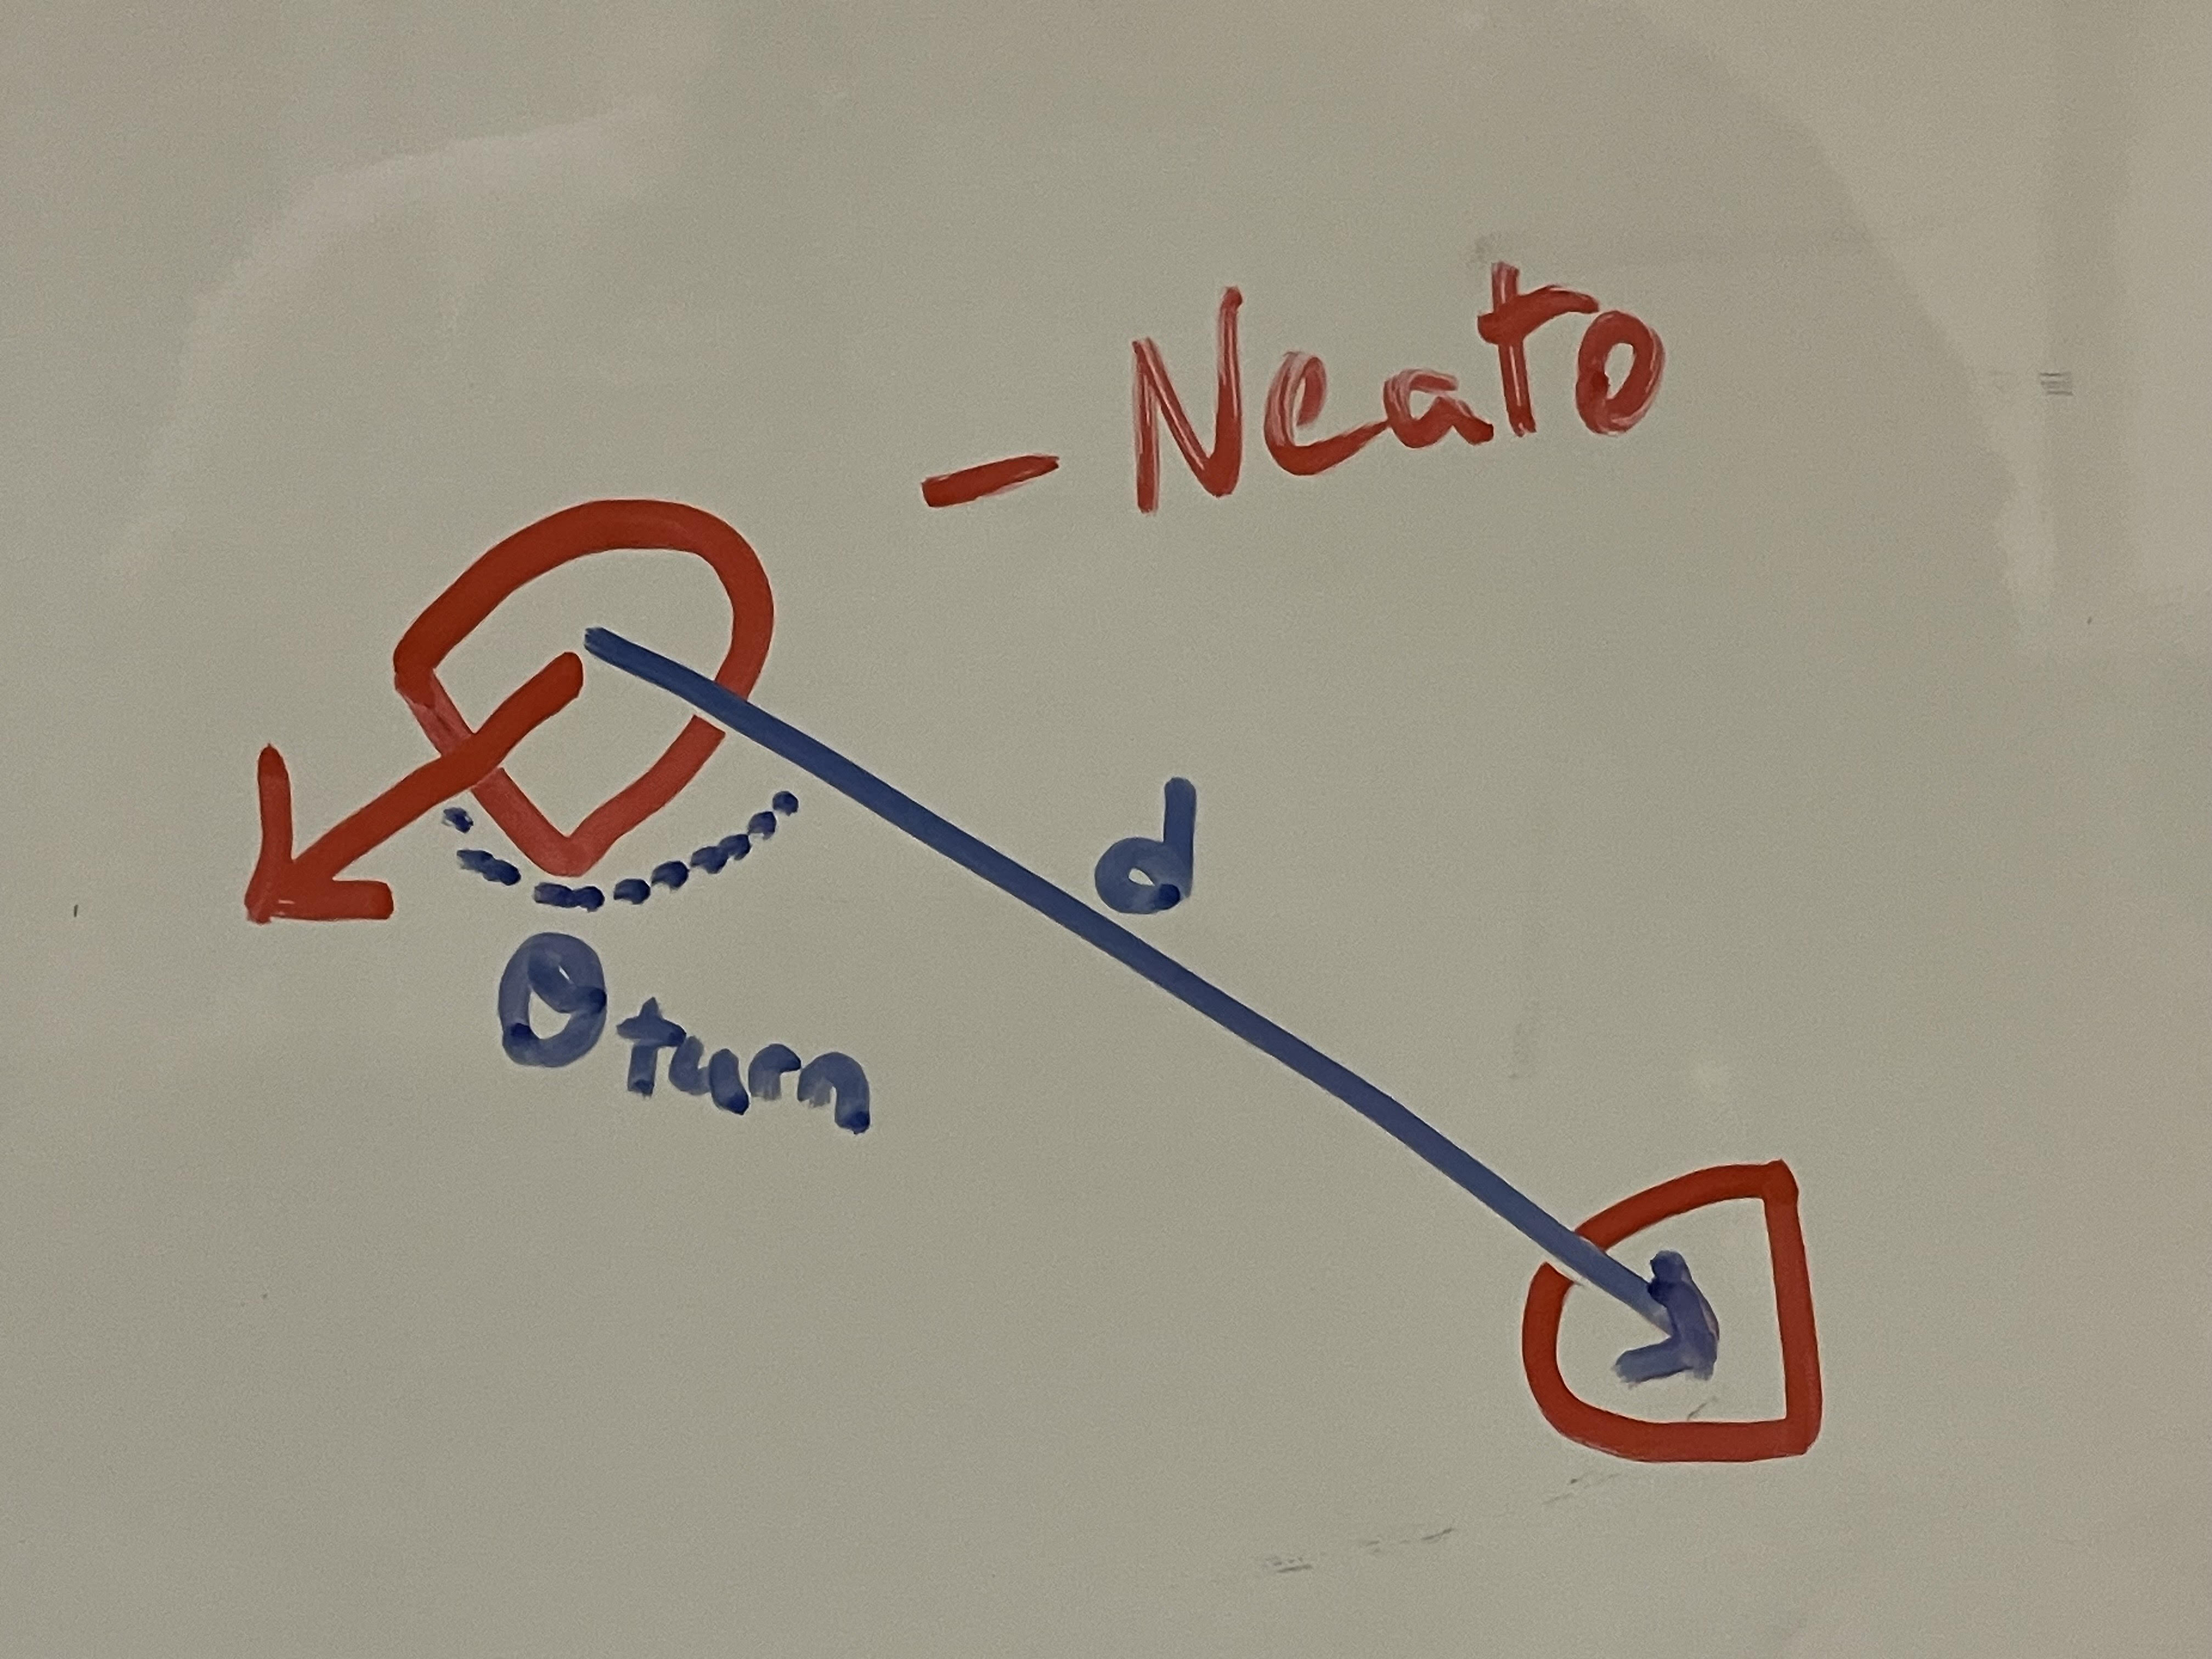 - Neato
d
θturn